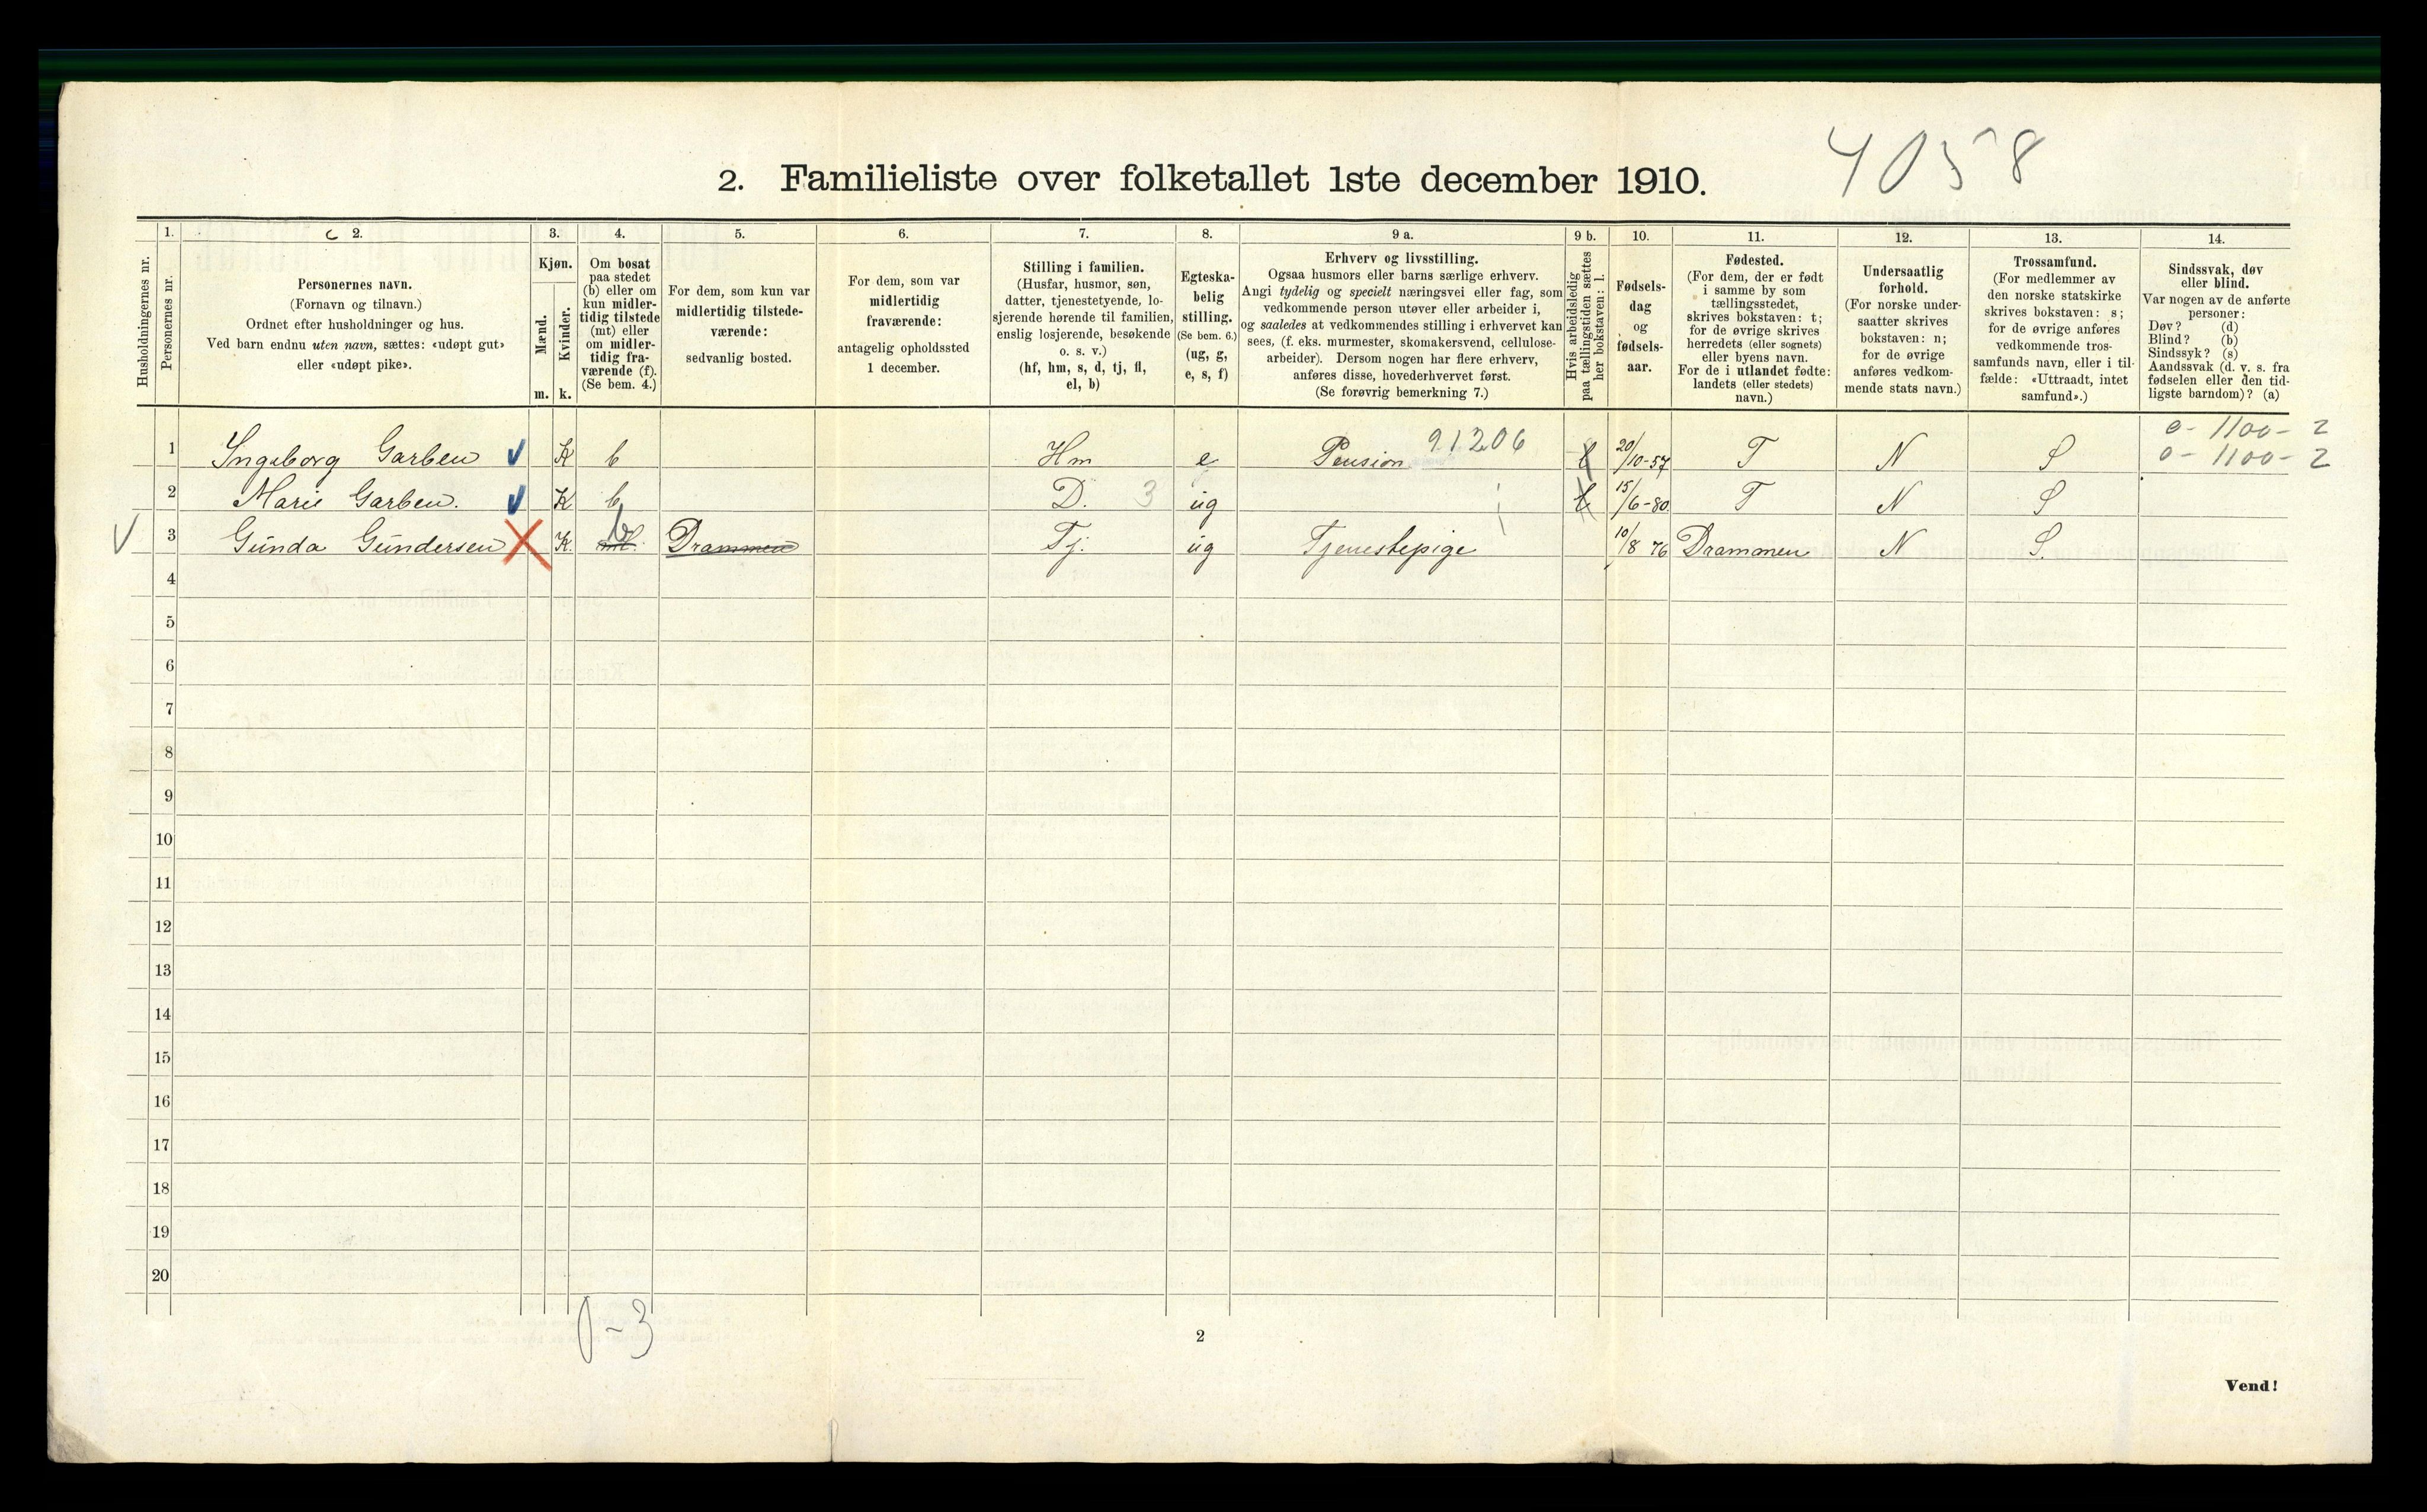 4058
2. Familieliste over folketallet 1ste december 1910.
Husholdningernes nr.
1.
Personernes nr.
2.
Personernes navn.
(Fornavn og tilnavn.)
Ordnet efter husholdninger og hus.
Ved barn endnu uten navn, sættes: «udøpt gut»
eller «udøpt pike».
3.
Kjøn.
Mænd.
Kvinder.
m.
k.
4.
Om bosat
paa stedet
(b) eller om
kun midler-
tidig tilstede
(mt) eller
om midler-
tidig fra-
værende (f).
(Se bem. 4.)
5.
For dem, som kun var
midlertidig tilstede-
værende:
sedvanlig bosted.
6.
For dem, som var
midlertidig
fraværende:
antagelig opholdssted
1 december.
7.
Stilling i familien.
(Husfar, husmor, søn,
datter, tjenestetyende, lo-
sjerende hørende til familien,
enslig losjerende, besøkende
o. s. v.)
(hf, hm, s, d, tj, fl,
el, b)
8.
Egteska-
belig
stilling.
(Se bem. 6.)
(ug, g,
e, s, f)
9 a.
Erhverv og livsstilling.
Ogsaa husmors eller barns særlige erhverv.
Angi tydelig og specielt næringsvei eller fag, som
vedkommende person utøver eller arbeider i,
og saaledes at vedkommendes stilling i erhvervet kan
sees, (f. eks. murmester, skomakersvend, cellulose-
arbeider). Dersom nogen har flere erhverv,
anføres disse, hovederhvervet først.
(Se forøvrig bemerkning 7.)
9 b.
Hvis arbeidsledig
paa tællingstiden sættes
her bokstaven: l.
10.
Fødsels-
dag
og
fødsels-
aar.
11.
Fødested.
(For dem, der er født
i samme by som
tællingsstedet,
skrives bokstaven: t;
for de øvrige skrives
herredets (eller sognets)
eller byens navn.
For de i utlandet fødte:
landets (eller stedets)
navn.)
12.
Undersaatlig
forhold.
(For norske under-
saatter skrives
bokstaven: n;
for de øvrige
anføres vedkom-
mende stats navn.)
13.
Trossamfund.
(For medlemmer av
den norske statskirke
skrives bokstaven: s;
for de øvrige anføres
vedkommende tros-
samfunds navn, eller i til-
fælde: «Uttraadt, intet
samfund».)
14.
Sindssvak, døv
eller blind.
Var nogen av de anførte
personer:
Døv? (d)
Blind? (b)
Sindssyk? (s)
Aandssvak (d. v. s. fra
fødselen eller den tid-
ligste barndom)? (a)
1 Ingeborg Garben K b Hm e Pension 91206 20/10-57 T N S 0 - 1100 - 2
0 - 1100 - 2
2 Marie Garben. K b D. 3 ug 15/6-80 T N S
3 Gunda Gundersen K. mt. b Drammen Tj. ug Tjenestepige 10/8 76 Drammen N S.
4
5
6
7
8
9
10
11
12
13
14
15
16
17
18
19
20
0-3
2
Vend!